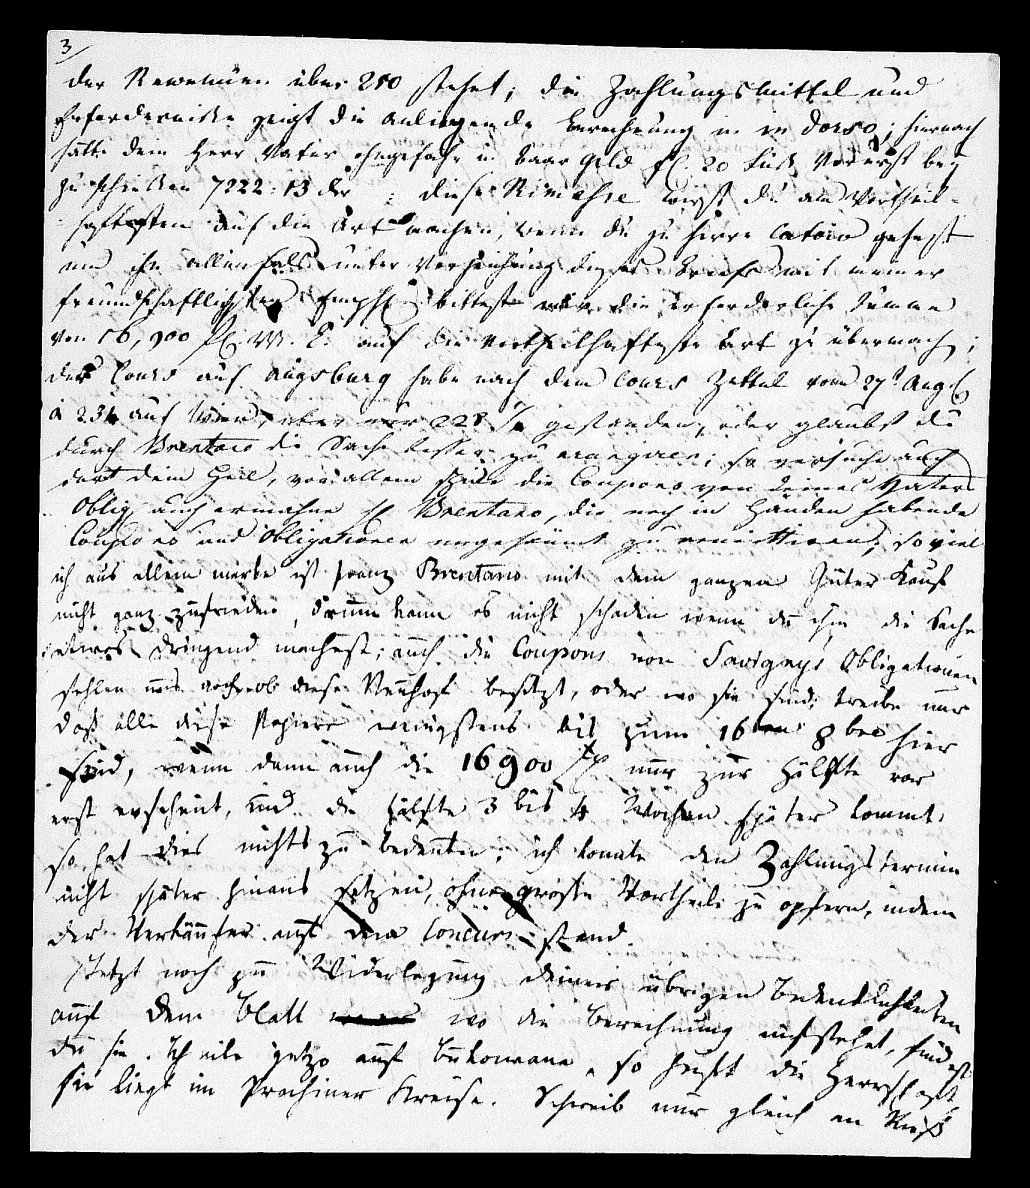 3
der Revenüen über 250 stehet; die Zahlungsmittel und
Erfordernisse zeigt die anliegende Berechnung in dorso; hiernach
hätte dem Herr Vater ohngefähr in baar Geld fl 20 Fuß
zu schießen 7222:13 diese Rimesse wirst du am Vortheil-
haftesten auf die Art machen, wenn du zu Herrn gehest
und ihn allenfals unter Vorzeigung dieses Briefs mit meiner
freundschaftlichsten Empfl bittest mir die erforderliche Summe
von 16,900 fl W. auf die vortheilhafteste Art zu übermachen;
der Cours auf Augsburg habe nach dem Cours Zettel vom 27t Aug
à 234 auf Wien, aber nur 228 gestanden, oder glaubst du
durch Brentano die Sache besser zu arrangiren; so versuche auch
dort dein Heil, vor allem schicke die Coupons von deines Vaters
Oblig auch ermahne Brentano, die noch in Handen habende
Coupons und Obligationen ungesäumt zu remittiren, so viel
ich aus allem merke ist Franz Brentano mit dem ganzen Güter Kauf
nicht ganz zufrieden, drum kann es nicht schaden wenn du ihm die Sache
etwas dringend machest; auch die Coupons von Savignys Obligationen
fehlen uns noch, ob diese Neuhof besitzt, oder wo sie sind; treibe nur
daß alle diese Papiere wenigstens bis zum 16ten 8ber hier
sind, wenn dann auch die 16900 fl nur zur Hälfte vor
erst erscheint, und die Hälfte 3 bis 4 Wochen später kommt,
so hat dies nichts zu bedeuten; ich konnte den Zahlungstermin
nicht später hinaus setzen, ohne große Vortheile zu opfern, indem
der Verkäufer auf dem Concurs stand.
Jetzt noch zu Widerlegung deiner übrigen Bedenklichkeiten
auf dem Blatt wo die Berechnung aufstehet, findest
du sie. Ich eile jetzo auf Bukowane, so heist die Herrschaft,
sie liegt im Prachiner Kreise. Schreib nur gleich an Rieß